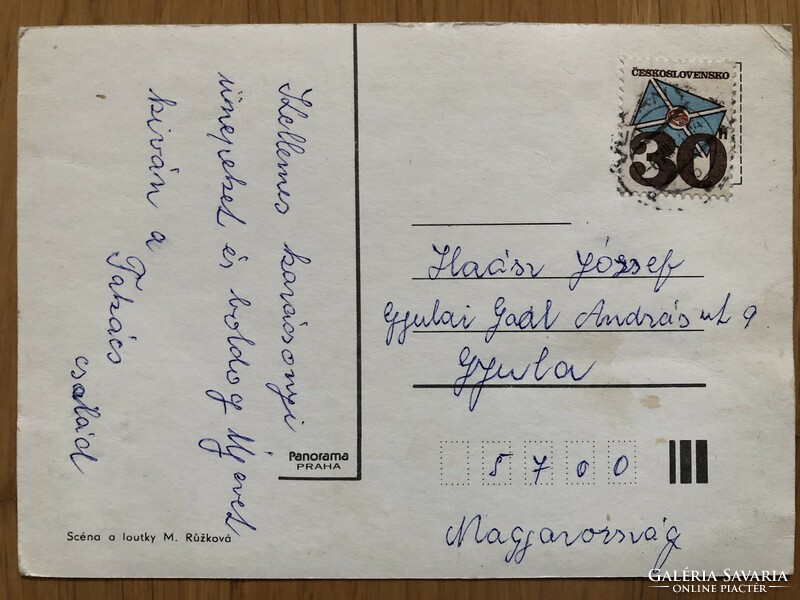 Kellemes karácsonyi
ünnepeket és boldog Új évet
kíván a
Takács
család
Panorama
PRAHA
Scéna a loutky M. Růžková
ČESKOSLOVENSKO
30
h
Haász József
Gyulai Gaál András ut 9
Gyula
5 7 0 0
Magyarország
GALÉRIA SAVARIA
ONLINE PIACTÉR